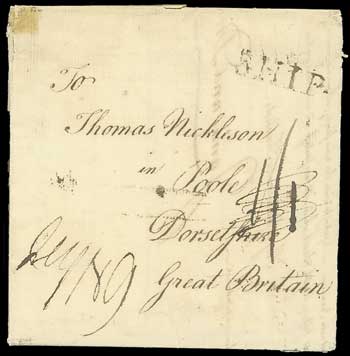 SHIP
To
Thomas Nickleson
in Poole
Dorsetshire
Great Britain